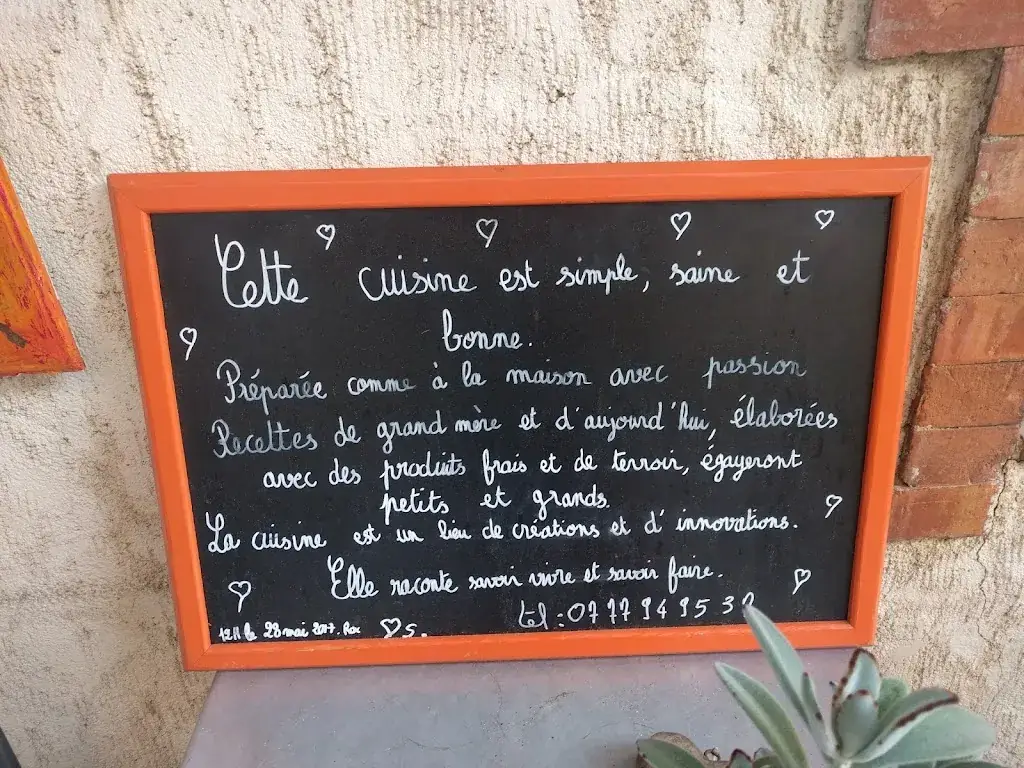 Cette cuisine est simple, saine et
bonne.
Préparée comme à la maison avec passion
Recettes de grand mère et d'aujourd'hui, élaborées
avec des produits frais et de terroir, égayeront
petits et grands.
La cuisine est un lieu de créations et d'innovations.
Elle raconte savoir vivre et savoir faire.
tel : 07 77 94 95 3
le 28 mai 2017. S.